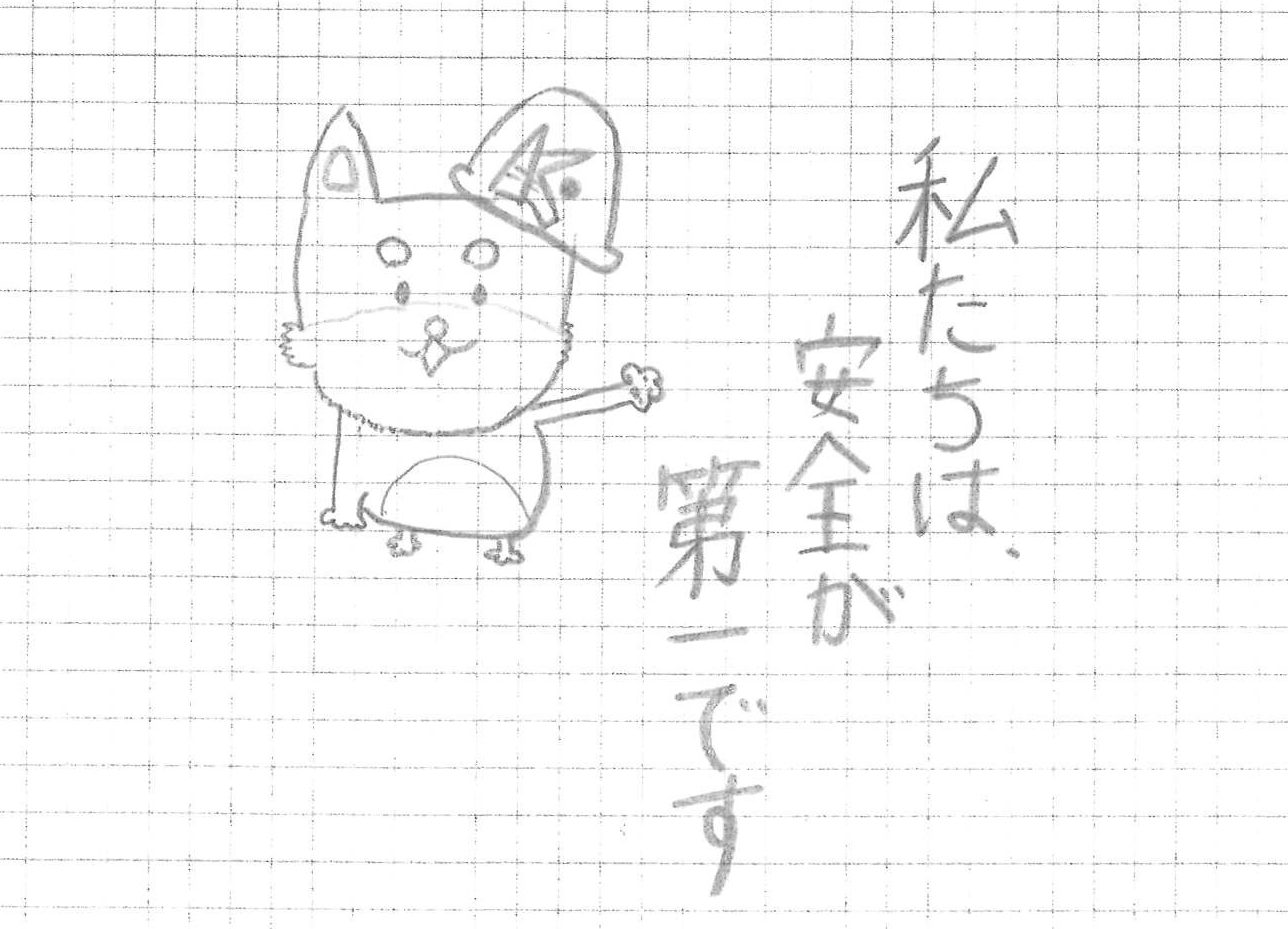 私たちは、
安全が
第一です